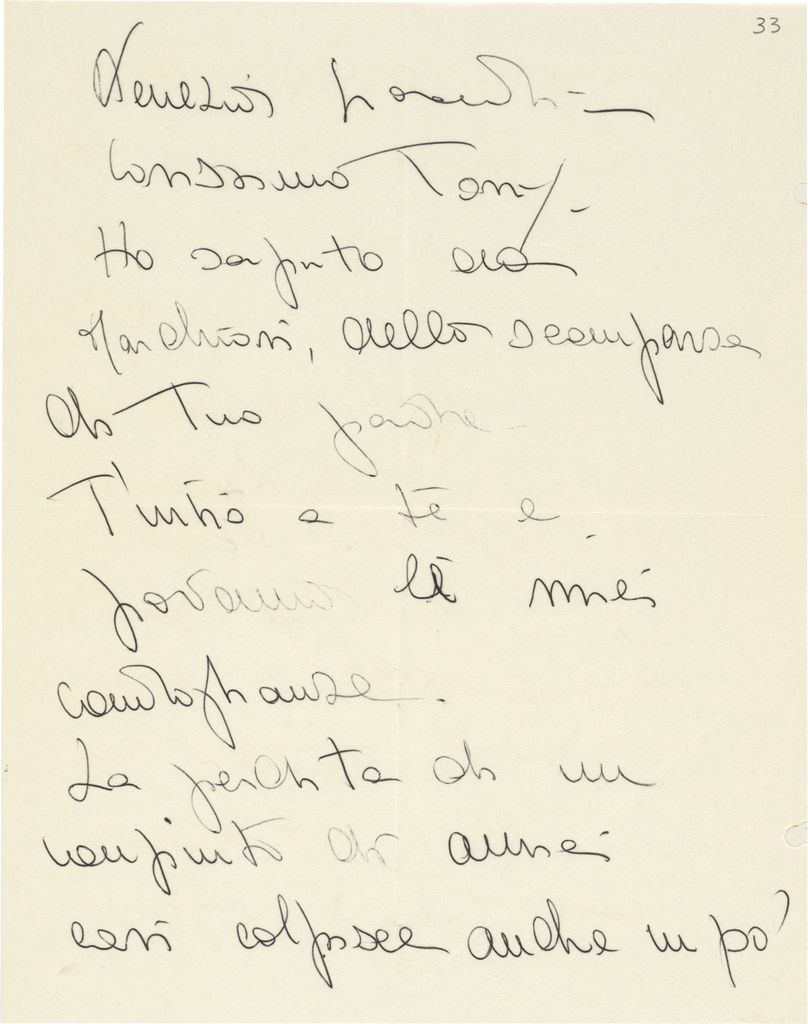 33
Venezia
Carissimo Tony -
Ho saputo da
Marchiori, della scomparsa
di Tuo padre
T'invio a te e
le mie
condoglianze.
La perdita di un
congiunto di amici
cari colpisce anche un po'